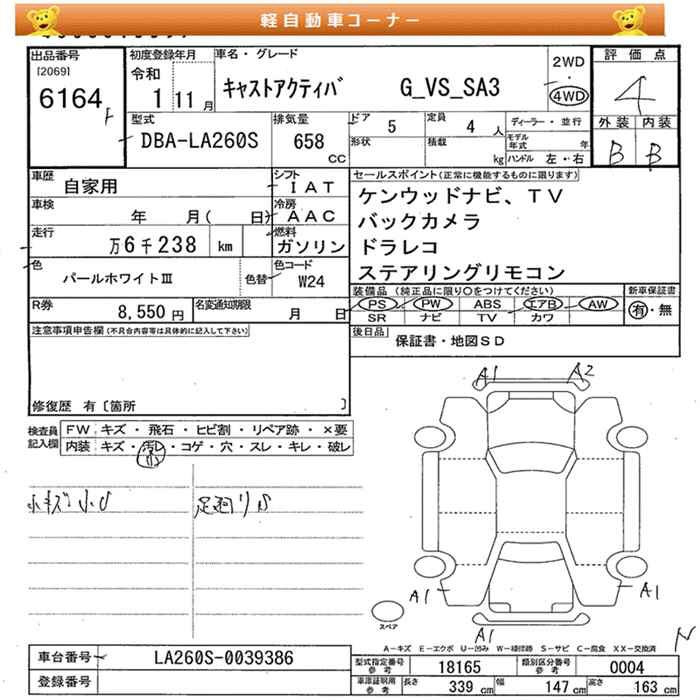 軽自動車コーナー
出品番号
[2069]
6164
初度登録年月
令和
1 11月
車名・グレード
キャストアクティバ G_VS_SA3
2WD
・
4WD
評価点
4
外装 内装
B B
型式
DBA-LA260S
排気量
658
CC
ドア
5
定員
4 人
形状
積載
kg
ディーラー・並行
モデル年式 年
ハンドル 左・右
車歴
自家用
シフト
IAT
車検
年 月( 日)
冷房
AAC
走行
万6千238 km
燃料
ガソリン
色
パールホワイトⅢ
色替
色コード
W24
R券
8,550 円
名変通知期限
月 日
セールスポイント(正常に機能するものに限ります)
ケンウッドナビ、TV
バックカメラ
ドラレコ
ステアリングリモコン
装備品(純正品に限り○をつけてください)
PS PW ABS エアB AW
SR ナビ TV カワ
新車保証書
有・無
後日品
保証書・地図SD
注意事項申告欄(不具合内容等は具体的に記入して下さい)
修復歴 有〔箇所 〕
検査員記入欄
FW キズ・飛石・ヒビ割・リペア跡・×要
内装 キズ・汚レ・コゲ・穴・スレ・キレ・破レ
小キズ 小U
足廻りS
A1 A2
A1 A1
A1
スペア
A-キズ E-エクボ U-凹み W-補修跡 S-サビ C-腐食 XX-交換済
車台番号
LA260S-0039386
登録番号
型式指定番号 参考
18165
類別区分番号 参考
0004
車庫証明用 参考
長さ 339 cm 幅 147 cm 高さ 163 cm